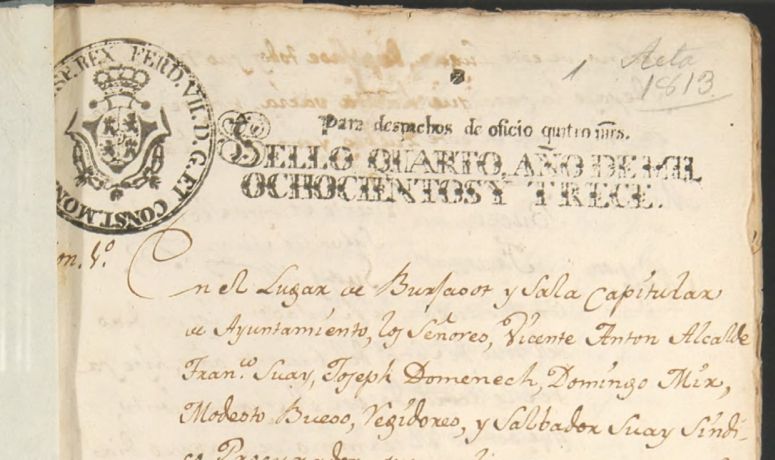 1 Acta
1813
FERD. VII. D. G. ET CONST. MON
SP. REX
Para despachos de oficio quatro mrs.
SELLO QUARTO, AÑO DE MIL
OCHOCIENTOS Y TRECE.
on. 1.º
En el Lugar de Burjasot y Sala Capitular
de Ayuntamiento, los Señores, Vicente Anton Alcalde
Fran.co Suay, Joseph Domenech, Domingo Mir,
Modesto Bueso, Regidores, y Salbador Suay Sindi-
co Procurador